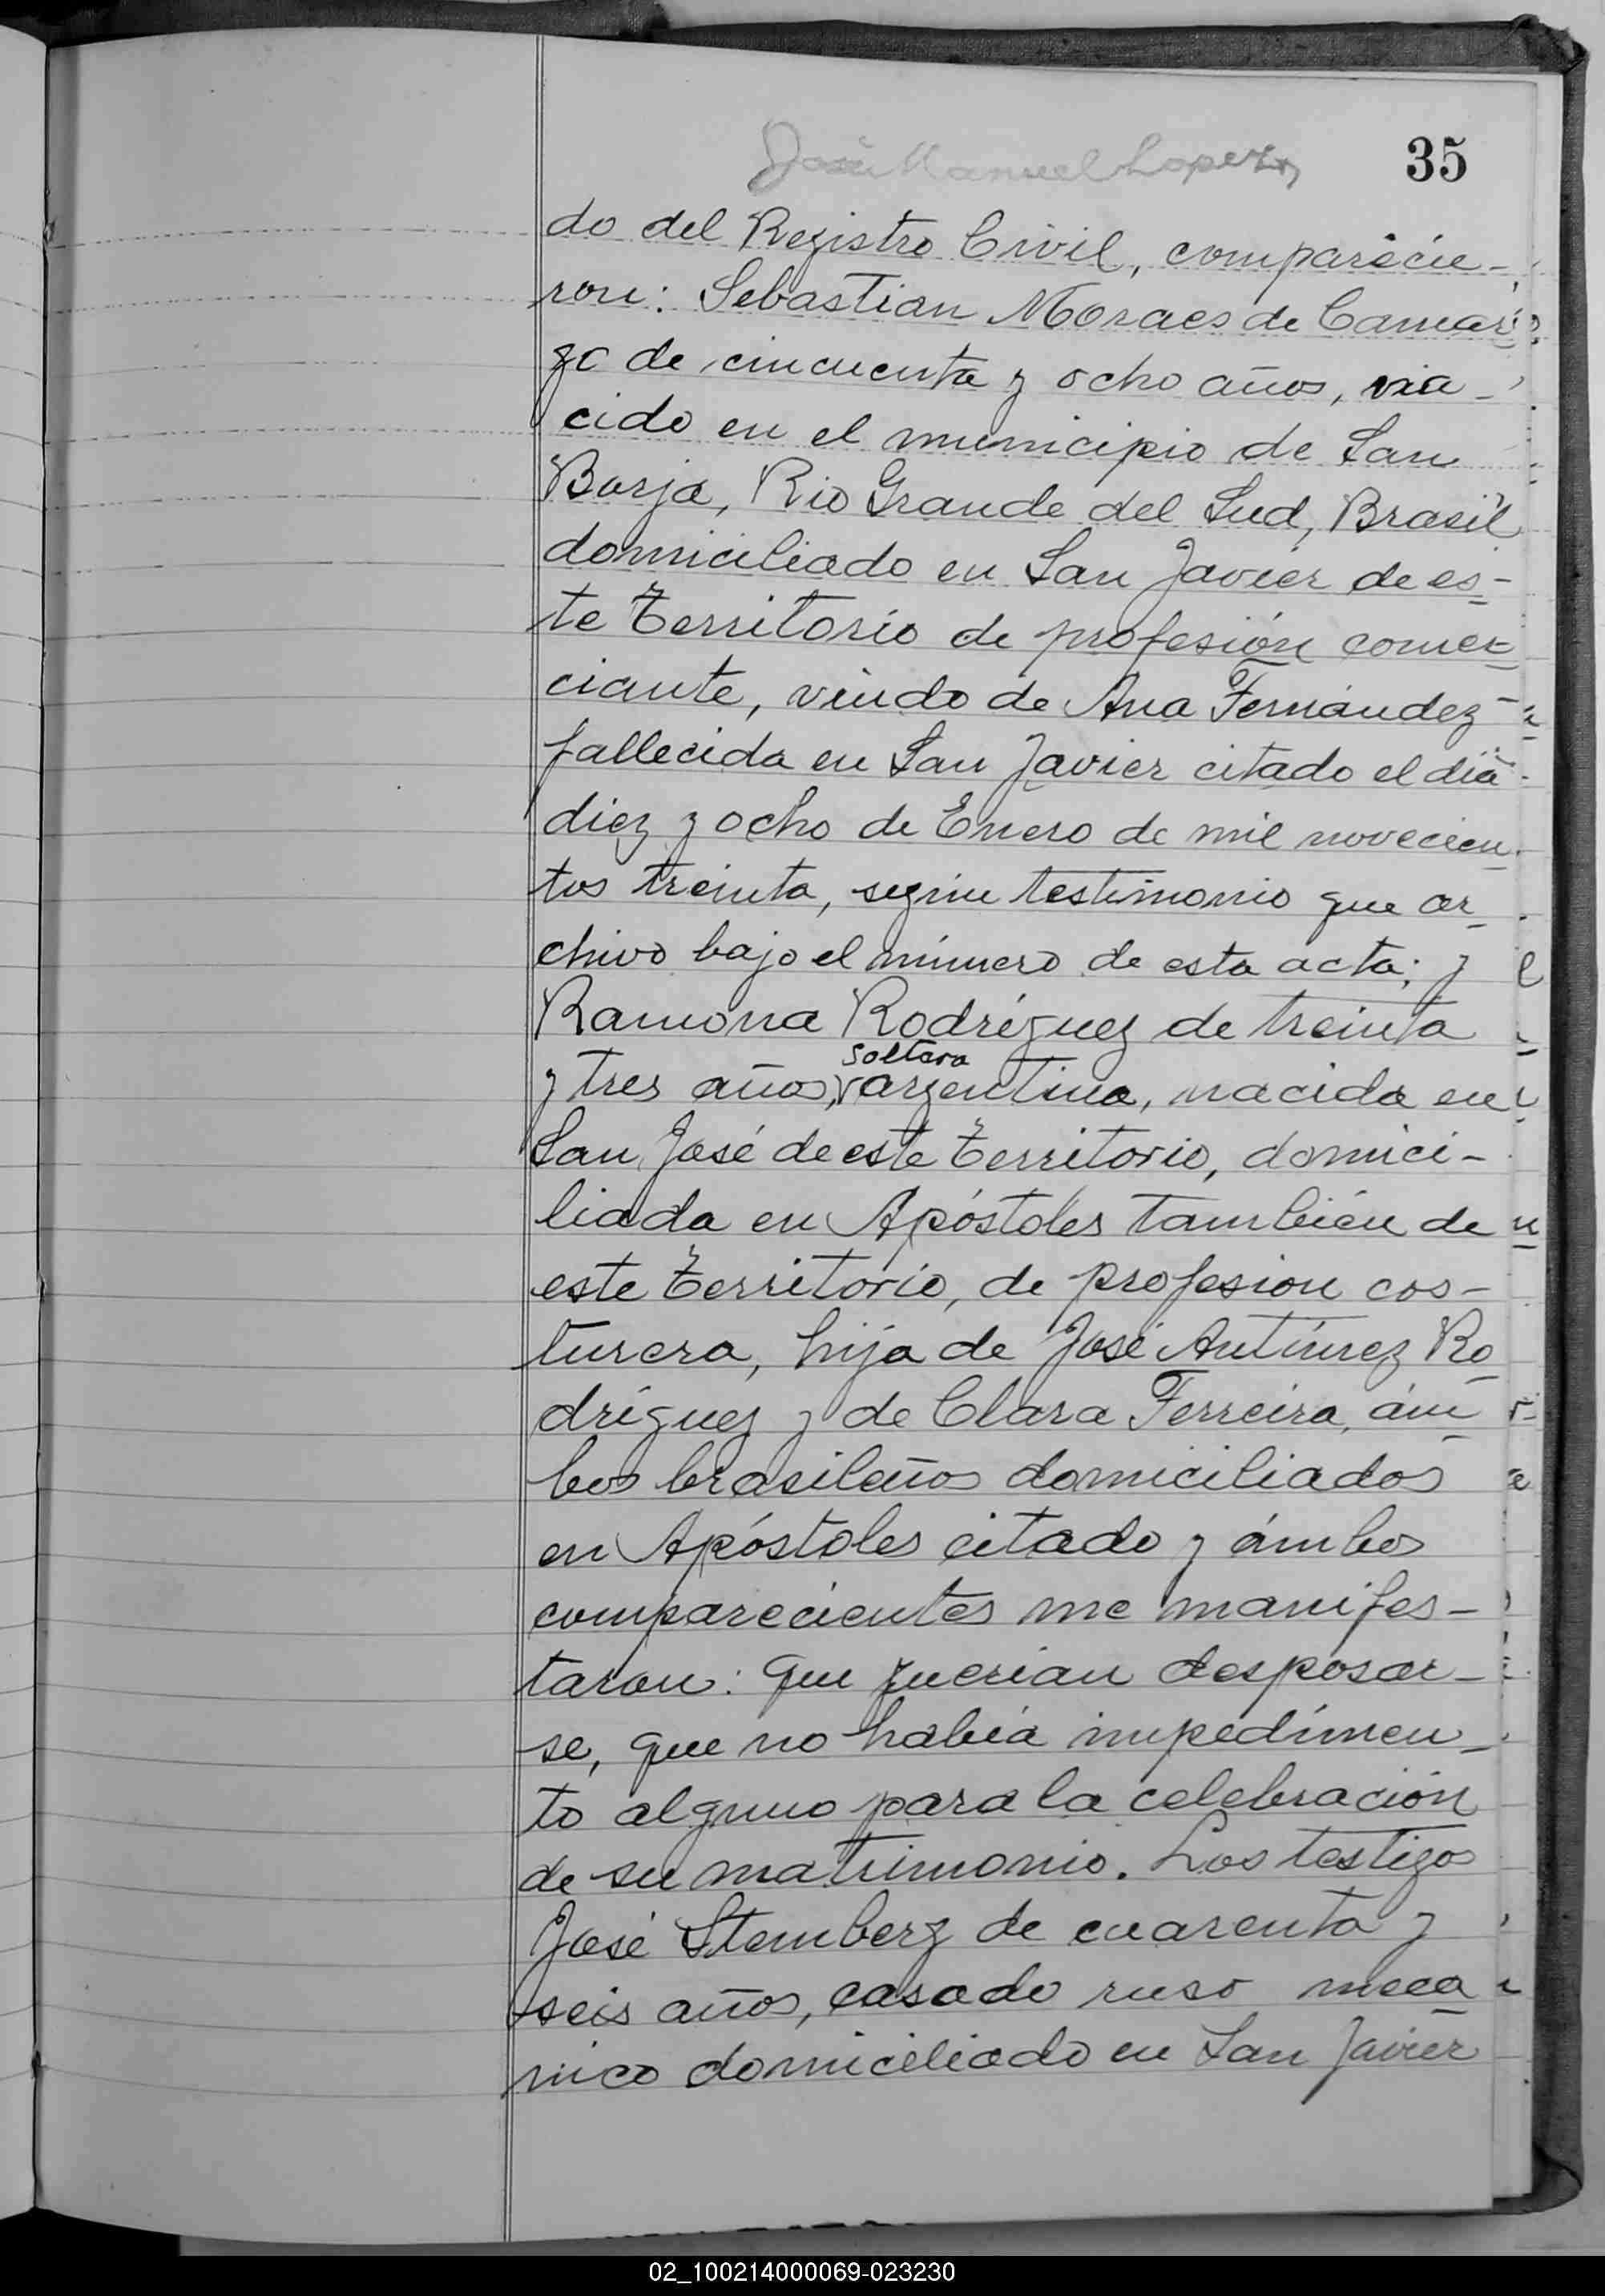 José Manuel Lopez
35
do del Registro Civil, comparecie-
ron: Sebastian Moraes de Camar
go de cincuenta y ocho años, na-
cido en el municipio de San
Borja, Rio Grande del Sud, Brasil
domiciliado en San Javier de es-
te Territorio de profesión comer
ciante, viudo de Ana Fernández-
fallecida en San Javier citado el día
diez y ocho de Enero de mil novecien
tos treinta, según testimonio que ar
chivo bajo el número de esta acta; y
Ramona Rodríguez de treinta
soltera
y tres años, argentina, nacida en
San José de este Territorio, domici-
liada en Apóstoles también de
este Territorio, de profesion cos-
turera, hija de José Antúnez Ro
dríguez y de Clara Ferreira, ám
bos brasileños domiciliados
en Apóstoles citado y ámbos
comparecientes me manifes-
taron: que querian desposar-
se, que no había impedimen-
to alguno para la celebración
de su matrimonio. Los testigos
José Stemberg de cuarenta y
seis años, casado ruso meca
nico domiciliado en San Javier
02_100214000069-023230